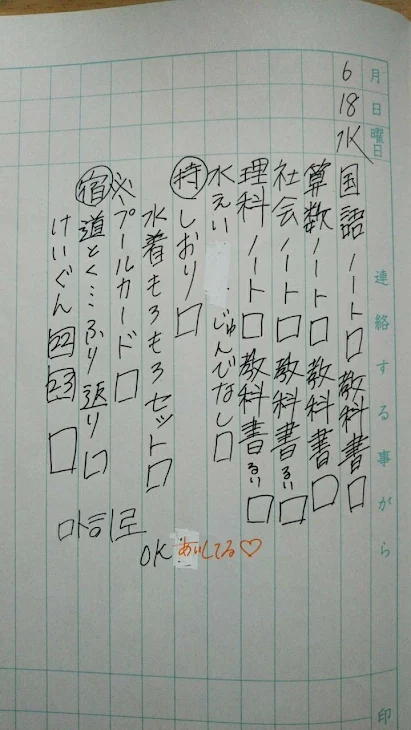 月 6
日 18
曜日 水
連絡する事がら
国語 ノート□ 教科書□
算数 ノート□ 教科書□
社会 ノート□ 教科書るい□
理科 ノート□ 教科書るい□
水えい じゅんびなし□
持 しおり□
水着もろもろセット□
※プールカード□
宿 道とく…ふり返り□
けいぐん 22 23 □
마히로
OK あいしてる♡
印